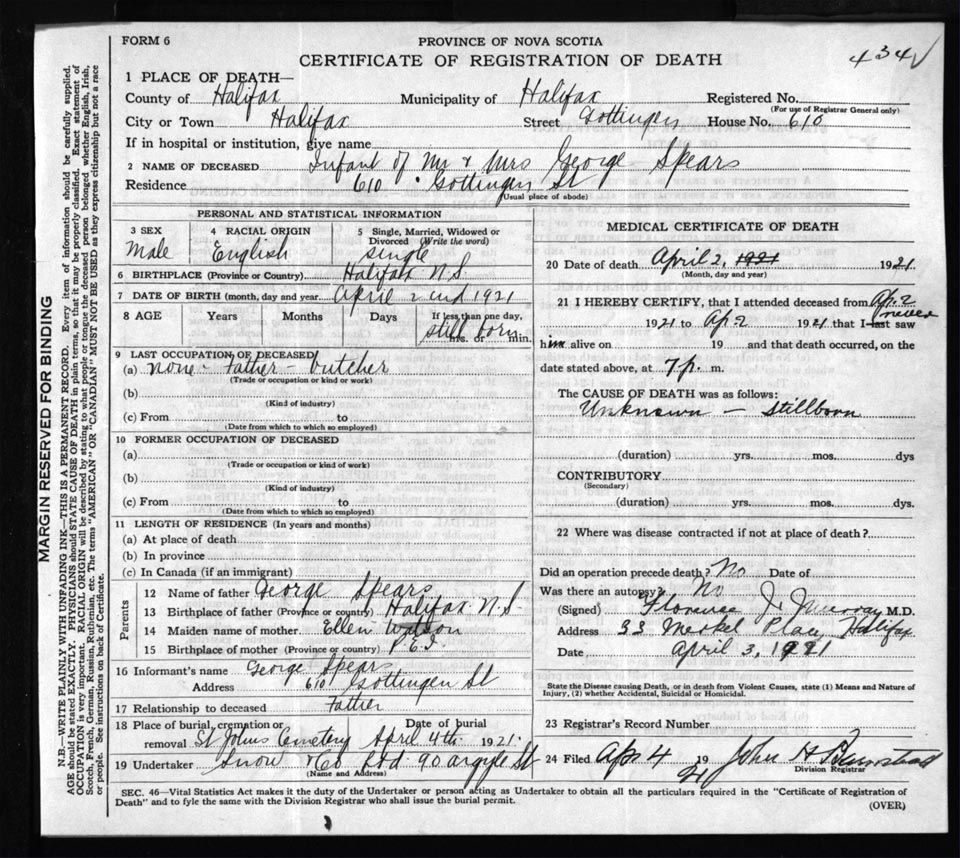 FORM 6
PROVINCE OF NOVA SCOTIA
CERTIFICATE OF REGISTRATION OF DEATH
434
1 PLACE OF DEATH—
County of Halifax Municipality of Halifax Registered No.
(For use of Registrar General only)
City or Town Halifax Street Gottingen House No. 610
If in hospital or institution, give name
2 NAME OF DECEASED Infant of Mr & Mrs George Spears
Residence 610 Gottingen St
(Usual place of abode)
PERSONAL AND STATISTICAL INFORMATION
3 SEX Male
4 RACIAL ORIGIN English
5 Single, Married, Widowed or Divorced (Write the word) single
6 BIRTHPLACE (Province or Country) Halifax N.S
7 DATE OF BIRTH (month, day and year) April 2nd 1921
8 AGE Years Months Days If less than one day, hrs. or min.
still born
9 LAST OCCUPATION OF DECEASED
(a) none - Father - butcher
(Trade or occupation or kind or work)
(b)
(Kind of industry)
(c) From to
(Date from which to which so employed)
10 FORMER OCCUPATION OF DECEASED
(a)
(Trade or occupation or kind of work)
(b)
(Kind of industry)
(c) From to
(Date from which to which so employed)
11 LENGTH OF RESIDENCE (In years and months)
(a) At place of death
(b) In province
(c) In Canada (if an immigrant)
Parents
12 Name of father George Spears
13 Birthplace of father (Province or country) Halifax N.S
14 Maiden name of mother Ellen Watson
15 Birthplace of mother (Province or country) P.E.I.
16 Informant's name George Spears
Address 610 Gottingen St
17 Relationship to deceased Father
18 Place of burial, cremation or removal St Johns Cemetery Date of burial April 4th 1921.
19 Undertaker Snow & Co Ltd. 90 Argyle St
(Name and Address)
MEDICAL CERTIFICATE OF DEATH
20 Date of death April 2, 1921 1921.
(Month, day and year)
21 I HEREBY CERTIFY, that I attended deceased from Ap. 2
1921 to Ap. 2 1921 that I last never saw
him alive on 19 and that death occurred, on the
date stated above, at 7 p. m.
The CAUSE OF DEATH was as follows:
Unknown — Stillborn
(duration) yrs. mos. dys
CONTRIBUTORY
(Secondary)
(duration) yrs. mos. dys.
22 Where was disease contracted if not at place of death?
Did an operation precede death? No Date of
Was there an autopsy? No
(Signed) Florence J. Murray M.D.
Address 33 Merkel Place, Halifax
Date April 3, 1921
State the Disease causing Death, or in death from Violent Causes, state (1) Means and Nature of Injury, (2) whether Accidental, Suicidal or Homicidal.
23 Registrar's Record Number
24 Filed Apr 4 1921 John H
Division Registrar
SEC. 46—Vital Statistics Act makes it the duty of the Undertaker or person acting as Undertaker to obtain all the particulars required in the "Certificate of Registration of
Death" and to fyle the same with the Division Registrar who shall issue the burial permit.
(OVER)
MARGIN RESERVED FOR BINDING
N.B.—WRITE PLAINLY WITH UNFADING INK—THIS IS A PERMANENT RECORD. Every item of information should be carefully supplied.
AGE should be stated EXACTLY. PHYSICIANS should STATE CAUSE OF DEATH in plain terms, so that it may be properly classified. Exact statement of
OCCUPATION is very important. RACIAL ORIGIN will be described by stating to what people or tongue the deceased person belonged whether English, Irish,
Scotch, French, German, Russian, Ruthenian, etc. The terms "AMERICAN" OR "CANADIAN" MUST NOT BE USED as they express citizenship but not a race
or people. See instructions on back of Certificate.